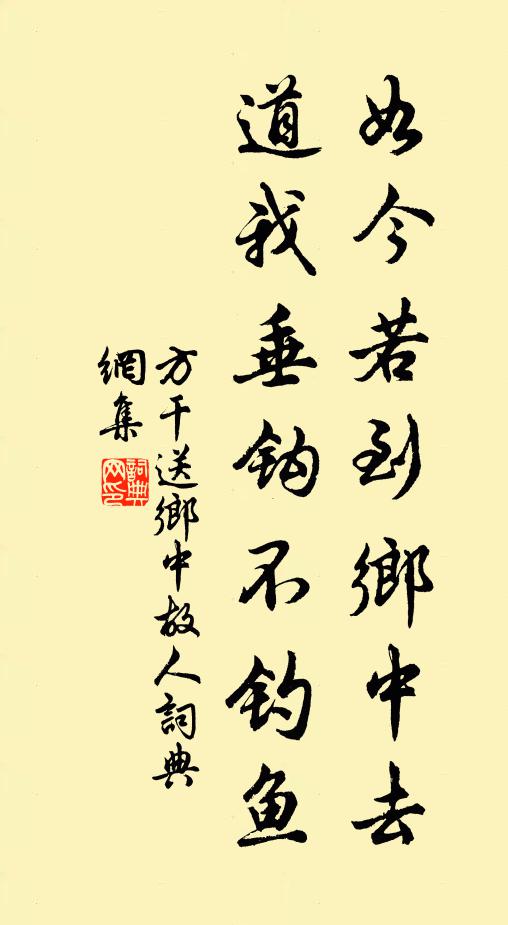 如今若到鄉中去
道我垂钩不钓鱼
方干送鄉中故人詞典
網集
詞典
网印